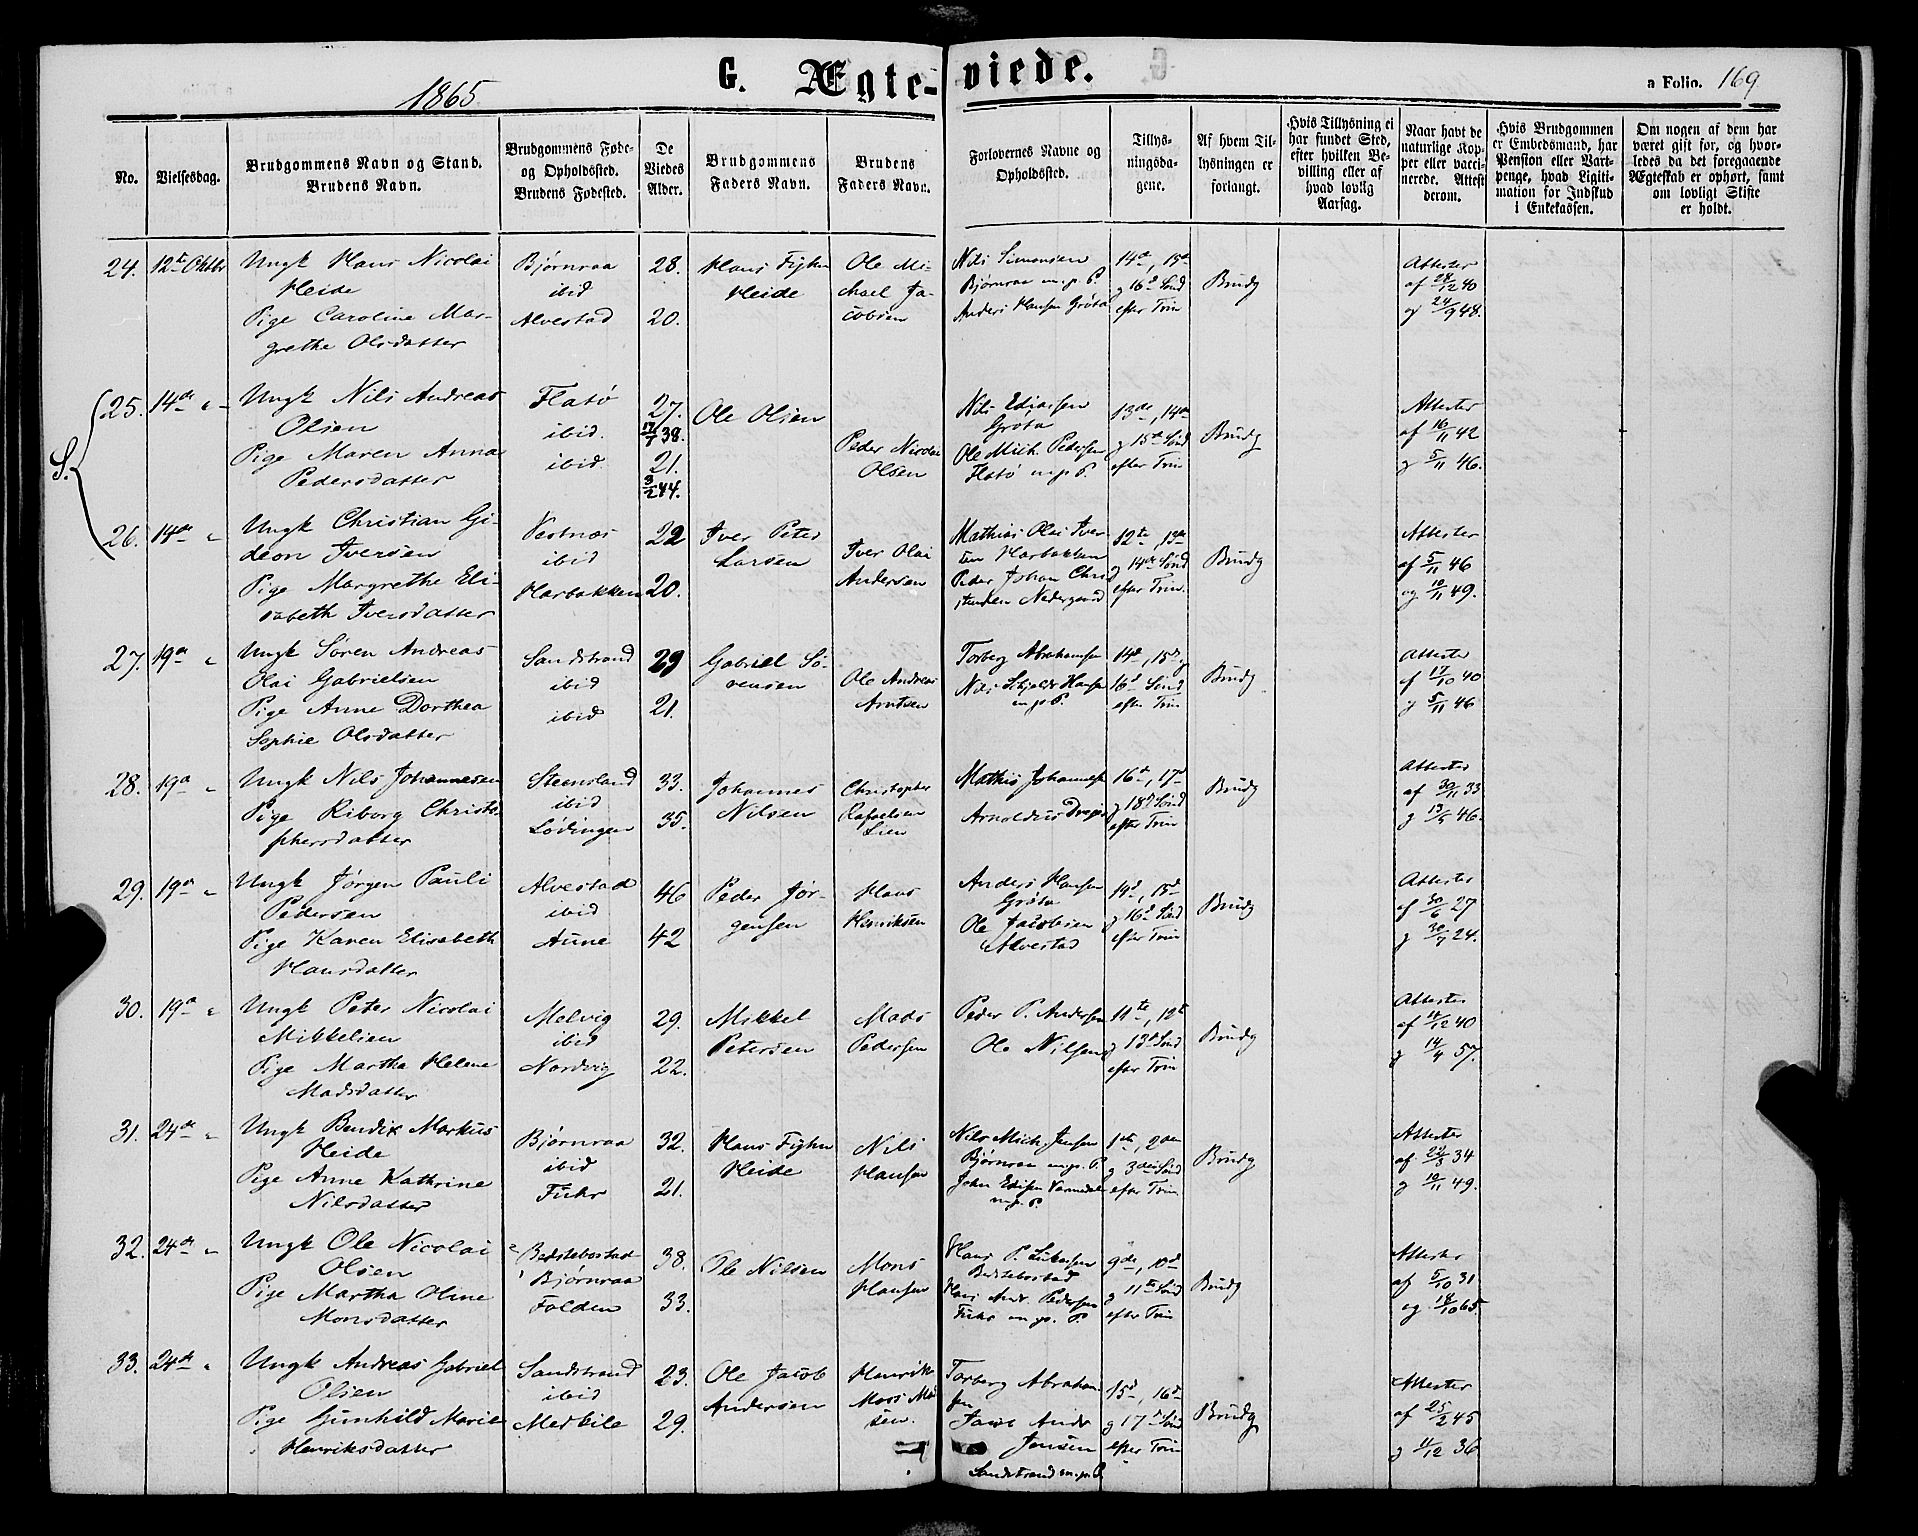 1865
G. Ægte-viede.
a Folio. 169
No.
Vielsesdag.
Brudgommens Navn og Stand.
Brudens Navn.
Brudgommens Føde-
og Opholdssted.
Brudens Fødested.
De
Viedes
Alder.
Brudgommens
Faders Navn.
Brudens
Faders Navn.
Forlovernes Navne og
Opholdssted.
Tillys-
ningsda-
gene.
Af hvem Til-
lysningen er
forlangt.
Hvis Tillysning ei
har fundet Sted,
efter hvilken Be-
villing eller af
hvad lovlig
Aarsag.
Naar havt de
naturlige Kop-
per eller vacci-
nerede. Attest
derom.
Hvis Brudgommen
er Embedsmand, har
Pension eller Vart-
penge, hvad Ligiti-
mation for Indskud
i Enkekassen.
Om nogen af dem har
været gift for, og hvor-
ledes da det foregaaende
Ægteskab er ophørt, samt
om lovligt Skifte
er holdt.
24. 12te Oktbr
Ungk Hans Nicolai
Heide
Pige Caroline Mar-
grethe Olsdatter
Bjørnraa
ibid
Alvestad
28.
20.
Hans Fyhn
Heide
Ole Mi-
chael Ja-
cobsen
Nils Simonsen
Bjørnraa m.p.P.
Anders Hansen Grøta
14de, 15de
g 16de Sønd
efter Trin
Brudg
Attester
af 28/12 40
g 24/9 48.
S.
25. 14de "
Ungk Nils Andreas
Olsen
Pige Maren Anna
Pedersdatter
Flatø
ibid.
ibid.
27.
17/7 38.
21.
3/2 44.
Ole Olsen
Peder Nicolai
Olsen
Nils Ediassen
Grøta
Ole Mich. Pedersen
Flatø m.p.P.
13de, 14de
g 15de Sønd
efter Trin
Brudg
Attester
af 16/11 42
g 5/11 46.
26. 14de "
Ungk Christian Gi-
deon Iversen
Pige Margrethe Eli-
sabeth Iversdatter
Vestnes
ibid
Harbakken
22
20.
Iver Peter
Larsen
Iver Olai
Andersen
Mathias Olai Iver
sen Harbakken
Peder Johan Chri
stensen Nedergaard
12te, 13de
g 14de Sønd
efter Trin.
Brudg
Attester
af 5/11 46
og 10/11 49.
27. 19de "
Ungk Søren Andreas
Olai Gabrielsen
Pige Anne Dorthea
Sophie Olsdatter
Sandstrand
ibid
ibid
29
21.
Gabriel Sø-
rensen
Ole Andreas
Arntsen
Torberg Abrahamsen
Nils Schjelde Hansen
m.p.P.
14de, 15de g
16de Sønd
efter Trin
Brudg
Attester
af 17/10 40
g 5/11 46
28. 19de "
Ungk Nils Johannesen
Pige Riborg Christo
phersdatter
Steensland
ibid
Lødingen
33.
35.
Johannes
Nilsen
Christopher
Rafaelsen
Lien
Mathis Johannes
Arnoldus
16de, 17de
g 18de Sønd
efter Trin
Brudg
Attester
af 30/11 33
g 13/5 46.
29. 19de "
Ungk Jørgen Pauli
Pedersen
Pige Karen Elisabeth
Hansdatter
Alvestad
ibid
Aune
46
42
Peder Jør-
gensen
Hans
Henriksen
Anders Hansen
Grøta
Ole Jacobsen
Alvestad
14de, 15de
g 16de Sønd
efter Trin
Brudg
Attester
af 30/6 27
g 30/7 24.
30. 19de "
Ungk Peter Nicolai
Mikkelsen
Pige Martha Helene
Madsdatter
Melvig
ibid
Nordvig
29.
22.
Mikkel
Petersen
Mads
Pedersen
Peder P. Andersen
Ole Nilsen
11te, 12te
g 13de Sønd
efter Trin
Brudg
Attester
af 14/12 40
g 14/4 57.
31. 24de "
Ungk Bendix Markus
Heide
Pige Anne Kathrine
Nilsdatter
Bjørnraa
ibid
Fuhr
32.
21.
Hans Fyhn
Heide
Nils
Hansen
Nils Mich. Jensen
Bjørnraa m.p.P.
John Edisen
m.p.P.
1ste, 2den
g 3die Sønd
efter Trin
Brudg
Attester
af 24/3 34
g 10/11 49.
32. 24de "
Ungk Ole Nicolai
Olsen
Pige Martha Oline
Monsdatter
Bedstebostad
Bjørnraa
Folden
38.
33.
Ole Nilsen
Mons
Hansen
Hans P. Lukassen
Bedstebostad
Hans Andr. Pedersen
Fuhr m.p.P.
9de, 10de
g 11te Sønd
efter Trin
Brudg
Attester
af 5/10 31
og 18/10 65.
33. 24de "
Ungk Andreas Gabriel
Olsen
Pige Gunhild Marie
Henriksdatter
Sandstrand
ibid
Medkile
23.
29.
Ole Jacob
Andersen
Henrik
Mons Mo
sen.
Torberg Abraham-
sen
Jens Andr
Jensen
Sandstrand m.p.P.
15de, 16de
g 17de Sønd
efter Trin
Brudg
Attester
af 25/2 45
g 11/12 36